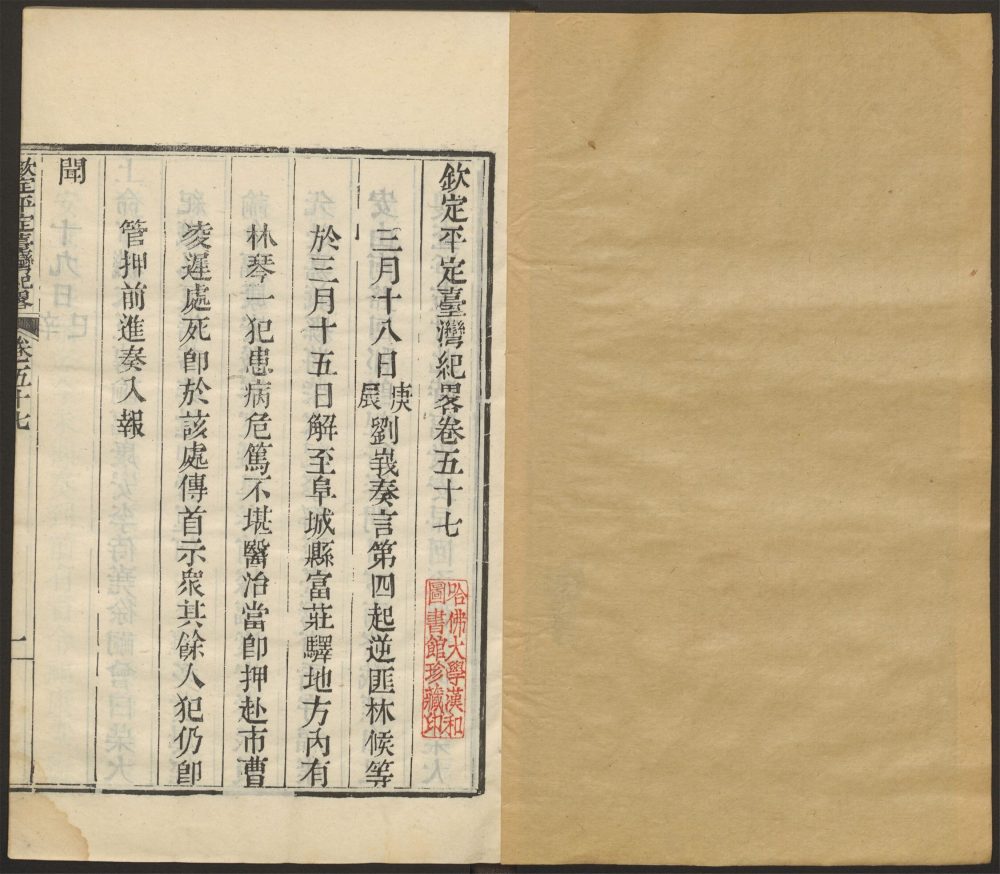 欽定平定臺灣紀畧卷五十七
三月十八日庚辰劉峩奏言第四起逆匪林候等
於三月十五日解至阜城縣富莊驛地方內有
林琴一犯患病危篤不堪醫治當卽押赴市曹
凌遲處死卽於該處傳首示衆其餘人犯仍卽
管押前進奏入報
聞
欽定平定臺灣紀畧
卷五十七
一
哈佛大學漢和
圖書館珍藏印